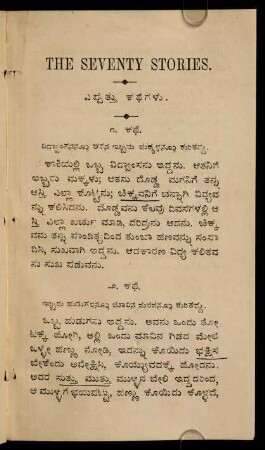 THE SEVENTY STORIES.
ಎಪ್ಪತ್ತು ಕಥೆಗಳು.
೧. ಕಥೆ.
ವಿದ್ವಾಂಸನನ್ನೂ ಅವನ ಇಬ್ಬರು ಮಕ್ಕಳನ್ನೂ ಕುರಿತದ್ದು.
ಕಾಶಿಯಲ್ಲಿ ಒಬ್ಬ ವಿದ್ವಾಂಸನು ಇದ್ದನು. ಆತನಿಗೆ
ಇಬ್ಬರು ಮಕ್ಕಳು; ಆತನು ದೊಡ್ಡ ಮಗನಿಗೆ ತನ್ನ
ಆಸ್ತಿ ಎಲ್ಲಾ ಕೊಟ್ಟನು; ಚಿಕ್ಕವನಿಗೆ ಚನ್ನಾಗಿ ವಿದ್ಯವ
ನ್ನು ಕಲಿಸಿದನು. ದೊಡ್ಡವನು ಕೆಲವು ದಿವಸಗಳಲ್ಲಿ ಆ
ಸ್ತಿ ಎಲ್ಲಾ ಖರ್ಚು ಮಾಡಿ, ದರಿದ್ರನು ಆದನು. ಚಿಕ್ಕ
ವನು ತನ್ನ ಪಾಂಡಿತ್ಯದಿಂದ ತುಂಬಾ ಹಣವನ್ನು ಸಂಪಾ
ದಿಸಿ, ಸುಖವಾಗಿ ಇದ್ದನು. ಆದಕಾರಣ ವಿದ್ಯೆ ಕಲಿತವ
ನು ಸುಖ ಪಡುವನು.
೨. ಕಥೆ.
ಇಬ್ಬರು ಹುಡುಗರನ್ನೂ ಮಾವಿನ ಮರವನ್ನೂ ಕುರಿತದ್ದು.
ಒಬ್ಬ ಹುಡುಗನು ಇದ್ದನು. ಅವನು ಒಂದು ತೋ
ಟಕ್ಕೆ ಹೋಗಿ, ಅಲ್ಲಿ ಒಂದು ಮಾವಿನ ಗಿಡದ ಮೇಲೆ
ಒಳ್ಳೇ ಹಣ್ಣು ನೋಡಿ, ಇದನ್ನು ಕೊಯಿದು ಭಕ್ಷಿಸ
ಬೇಕೆಂದು ಅಪೇಕ್ಷಿಸಿ, ಕೊಯ್ಯುವದಕ್ಕೆ ಹೋದನು.
ಅದರ ಸುತ್ತು ಮುತ್ತು ಮುಳ್ಳಿನ ಬೇಲಿ ಇದ್ದದರಿಂದ,
ಆ ಮುಳ್ಳಿಗೆ ಭಯಪಟ್ಟು, ಹಣ್ಣು ಕೊಯಿದು ಕೊಳ್ಳದೆ,